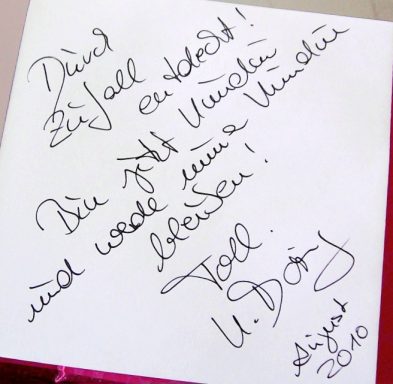 Durch
Zufall entdeckt!
Bin jetzt Kundin
und werde immer Kundin
bleiben!
Toll.
August
2010